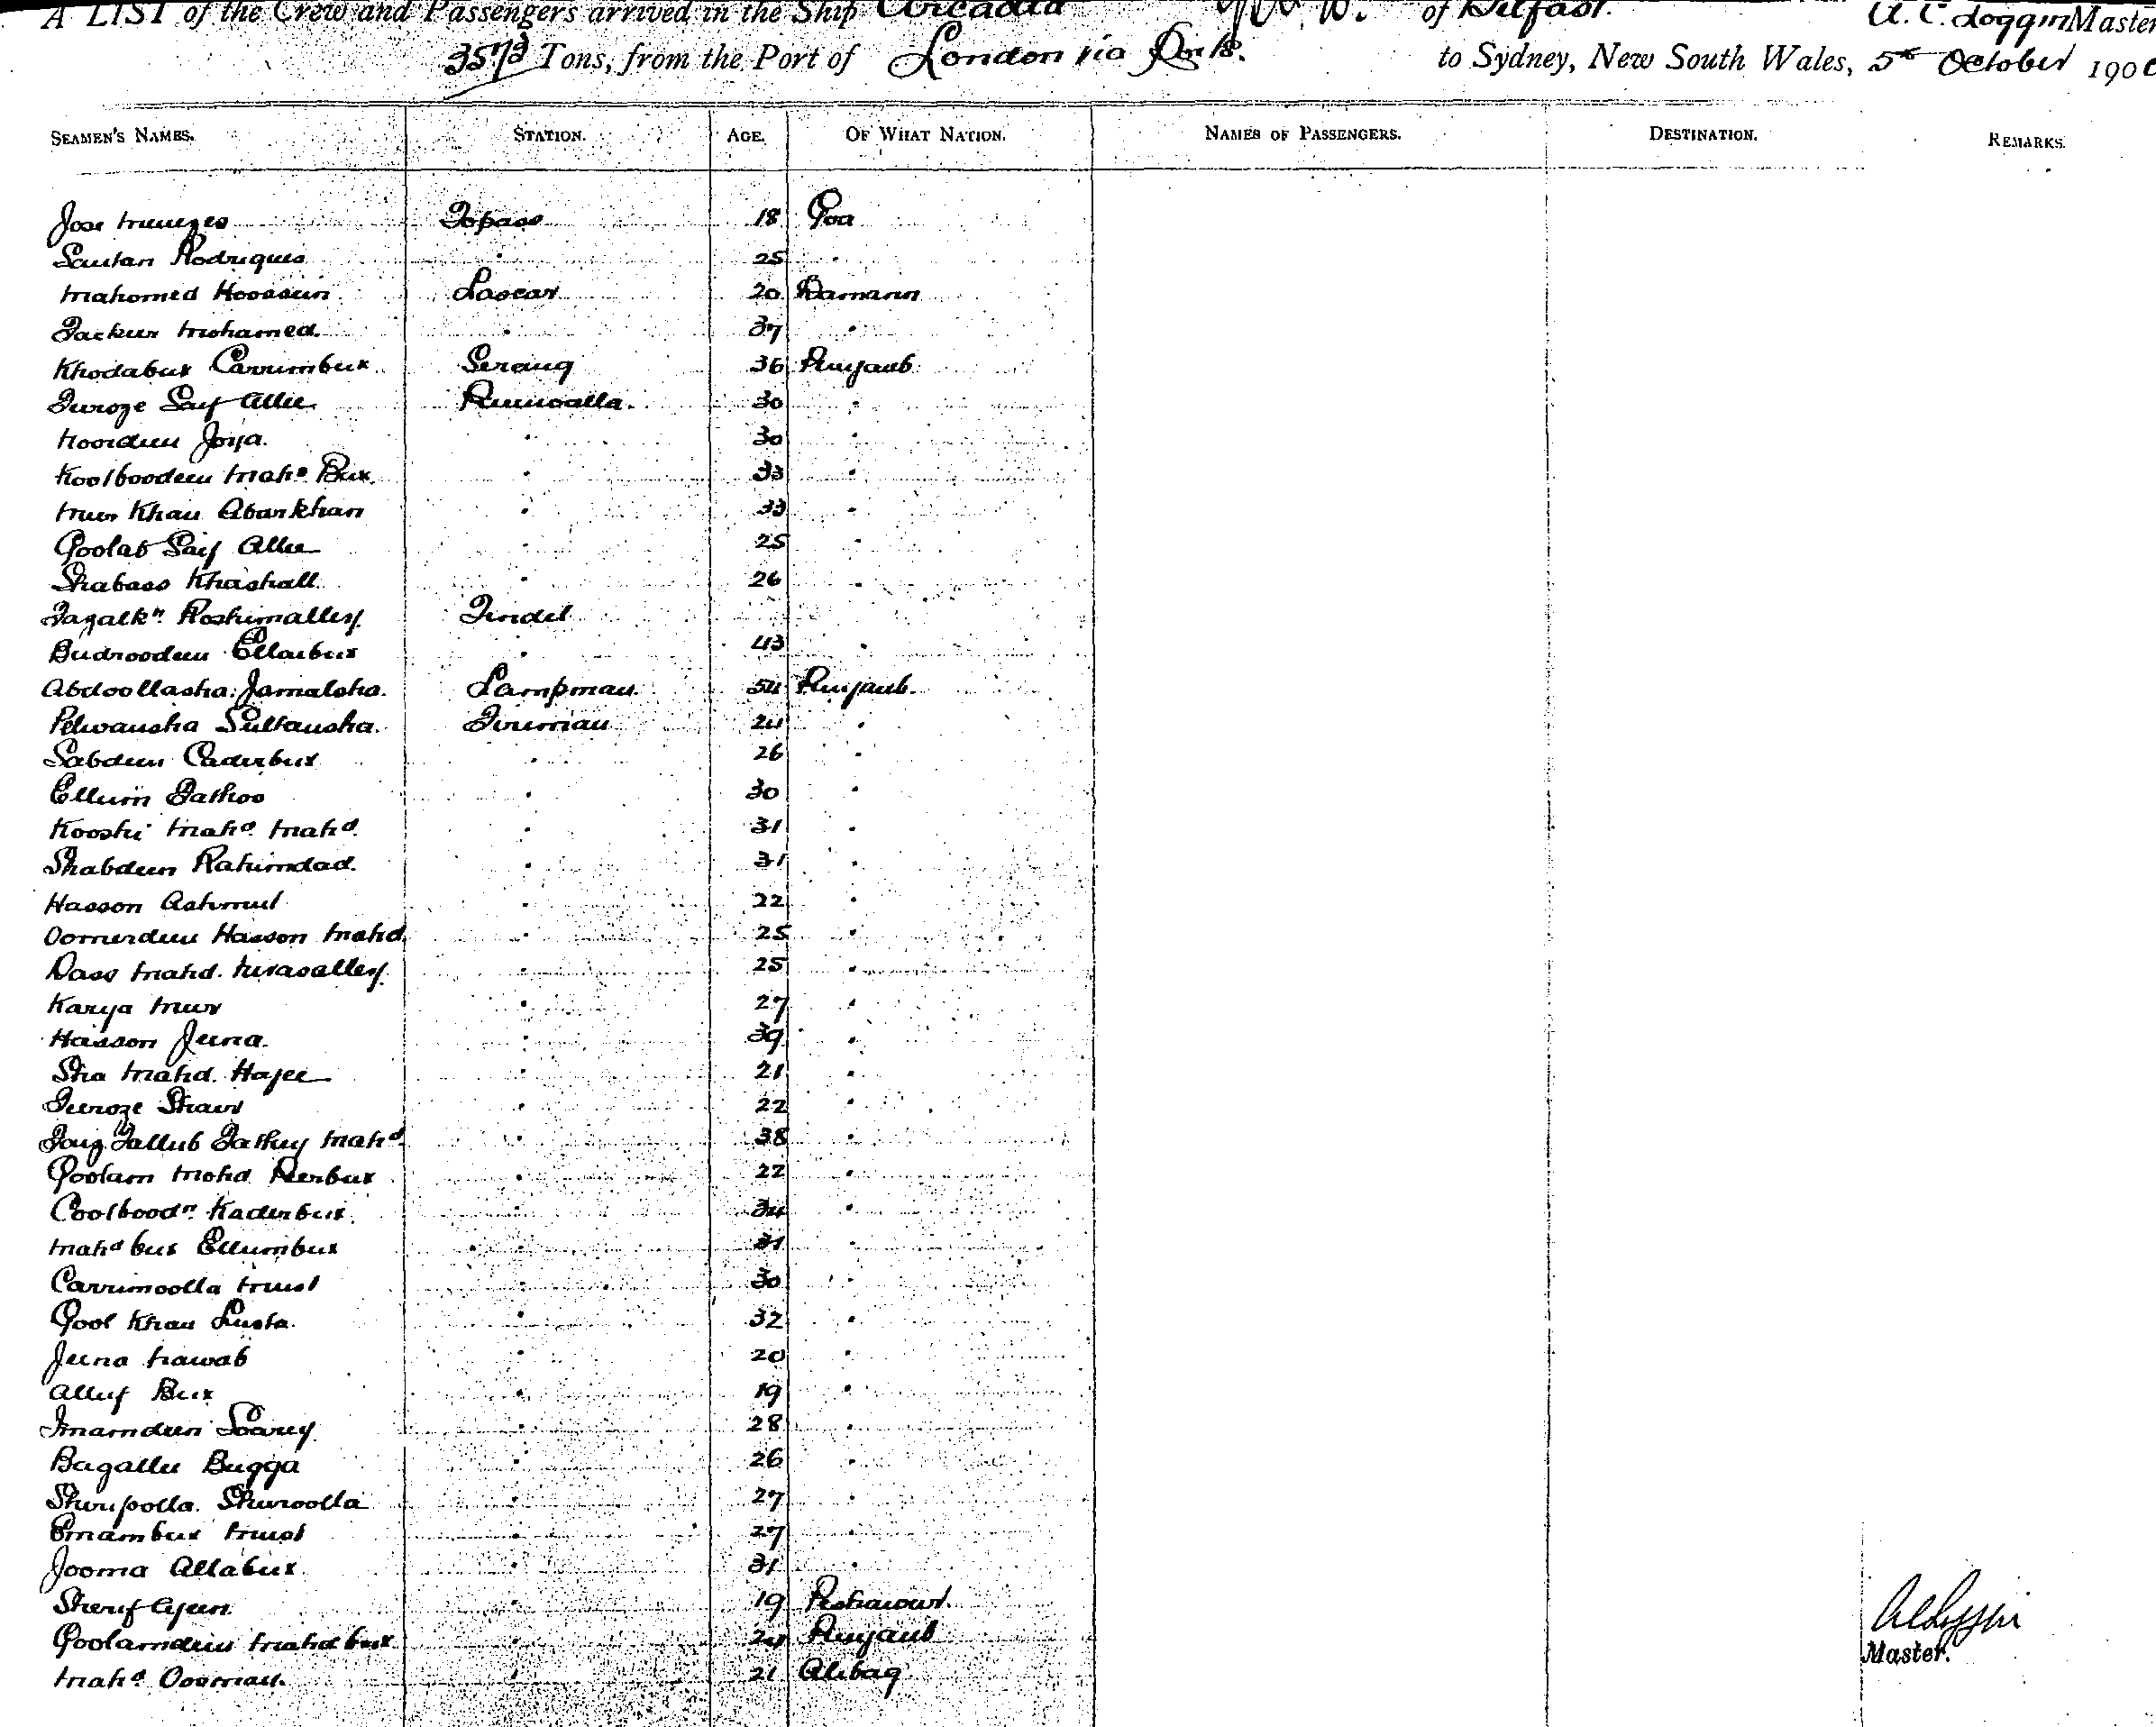 A LIST of the Crew and Passengers arrived in the Ship Arcadia of Belfast. Master
3573 Tons, from the Port of London via Ports. to Sydney, New South Wales, 5th October 190
SEAMEN'S NAMES. STATION. AGE. OF WHAT NATION. NAMES OF PASSENGERS. DESTINATION. REMARKS.
Jose Menezes Topass 18 Goa
Santan Rodrigues " 25 "
Mahomed Hoossein Lascar 20 Damann
Mohamed " 37 "
Khodabux Carrimbux Serang 36 Punjaub
Feroze Saif Allie 30 "
Noordeen Joya. " 30 "
Koolboodeen Mahd Bux " 33 "
Meer Khan Abankhan " 33 "
Goolab Saif Allie " 25 "
Shabass Khashall " 26 "
Fazalkn Roshimalley Tindel
Budroodeen Ellaibux " 43 "
Abdoollasha Jamalsha. Lampman 54 Punjaub
Pelwansha Sultansha. Fireman 24 "
Sabdeen Caderbux " 26 "
Ellum Fathoo " 30 "
Kooshi Mahd Mahd " 31 "
Shabdeen Rahimdad. " 31 "
Hasson " 22 "
Oomerdeen Hasson Mahd " 25 "
Dass Mahd. " 25 "
Karya Meer " 27 "
Hasson Jeena. " 39 "
Sha Mahd. Hajee " 21 "
Feeroze " 22 "
Fallub Mahd " 38 "
Goolam Mohd Peerbux " 22 "
Coolboodn Kaderbux " 34 "
Mahd bux Ellumbux " 31 "
Carrimoolla " 30 "
Gool Khan Lusta. " 32 "
Jeena Nawab " 20 "
Alluf Bux " 19 "
Imamdeen " 28 "
Bagallee Bugga " 26 "
" 27 "
Emambux " 27 "
Jooma Allabux " 31 "
Sherif " 19 Peshawur
Goolamdeen Mahdbux " 24 Punjaub
Mahd Oosman. " 21 Alibag
Master.